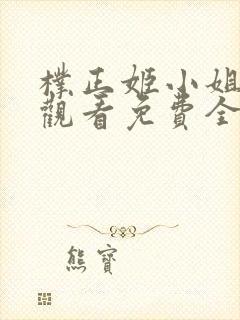 樸正姬小姐
觀看免費全
熊寶